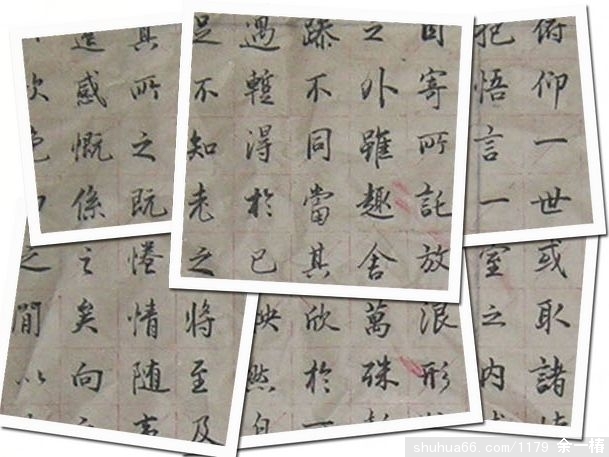 俯仰一世或取諸
悟言一室之内
因寄所託放浪形
之外雖趣舍萬殊
躁不同當其欣於
遇暫得於己怏然自
足不知老之將至及
其所之既惓情随事
遷感慨係之矣向之
之間以
shuhua66.com/1179 余一椿